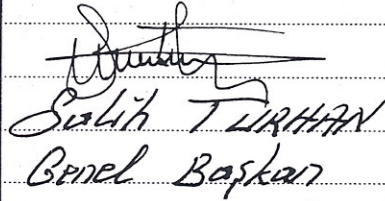 Salih TURHAN
Genel Başkan